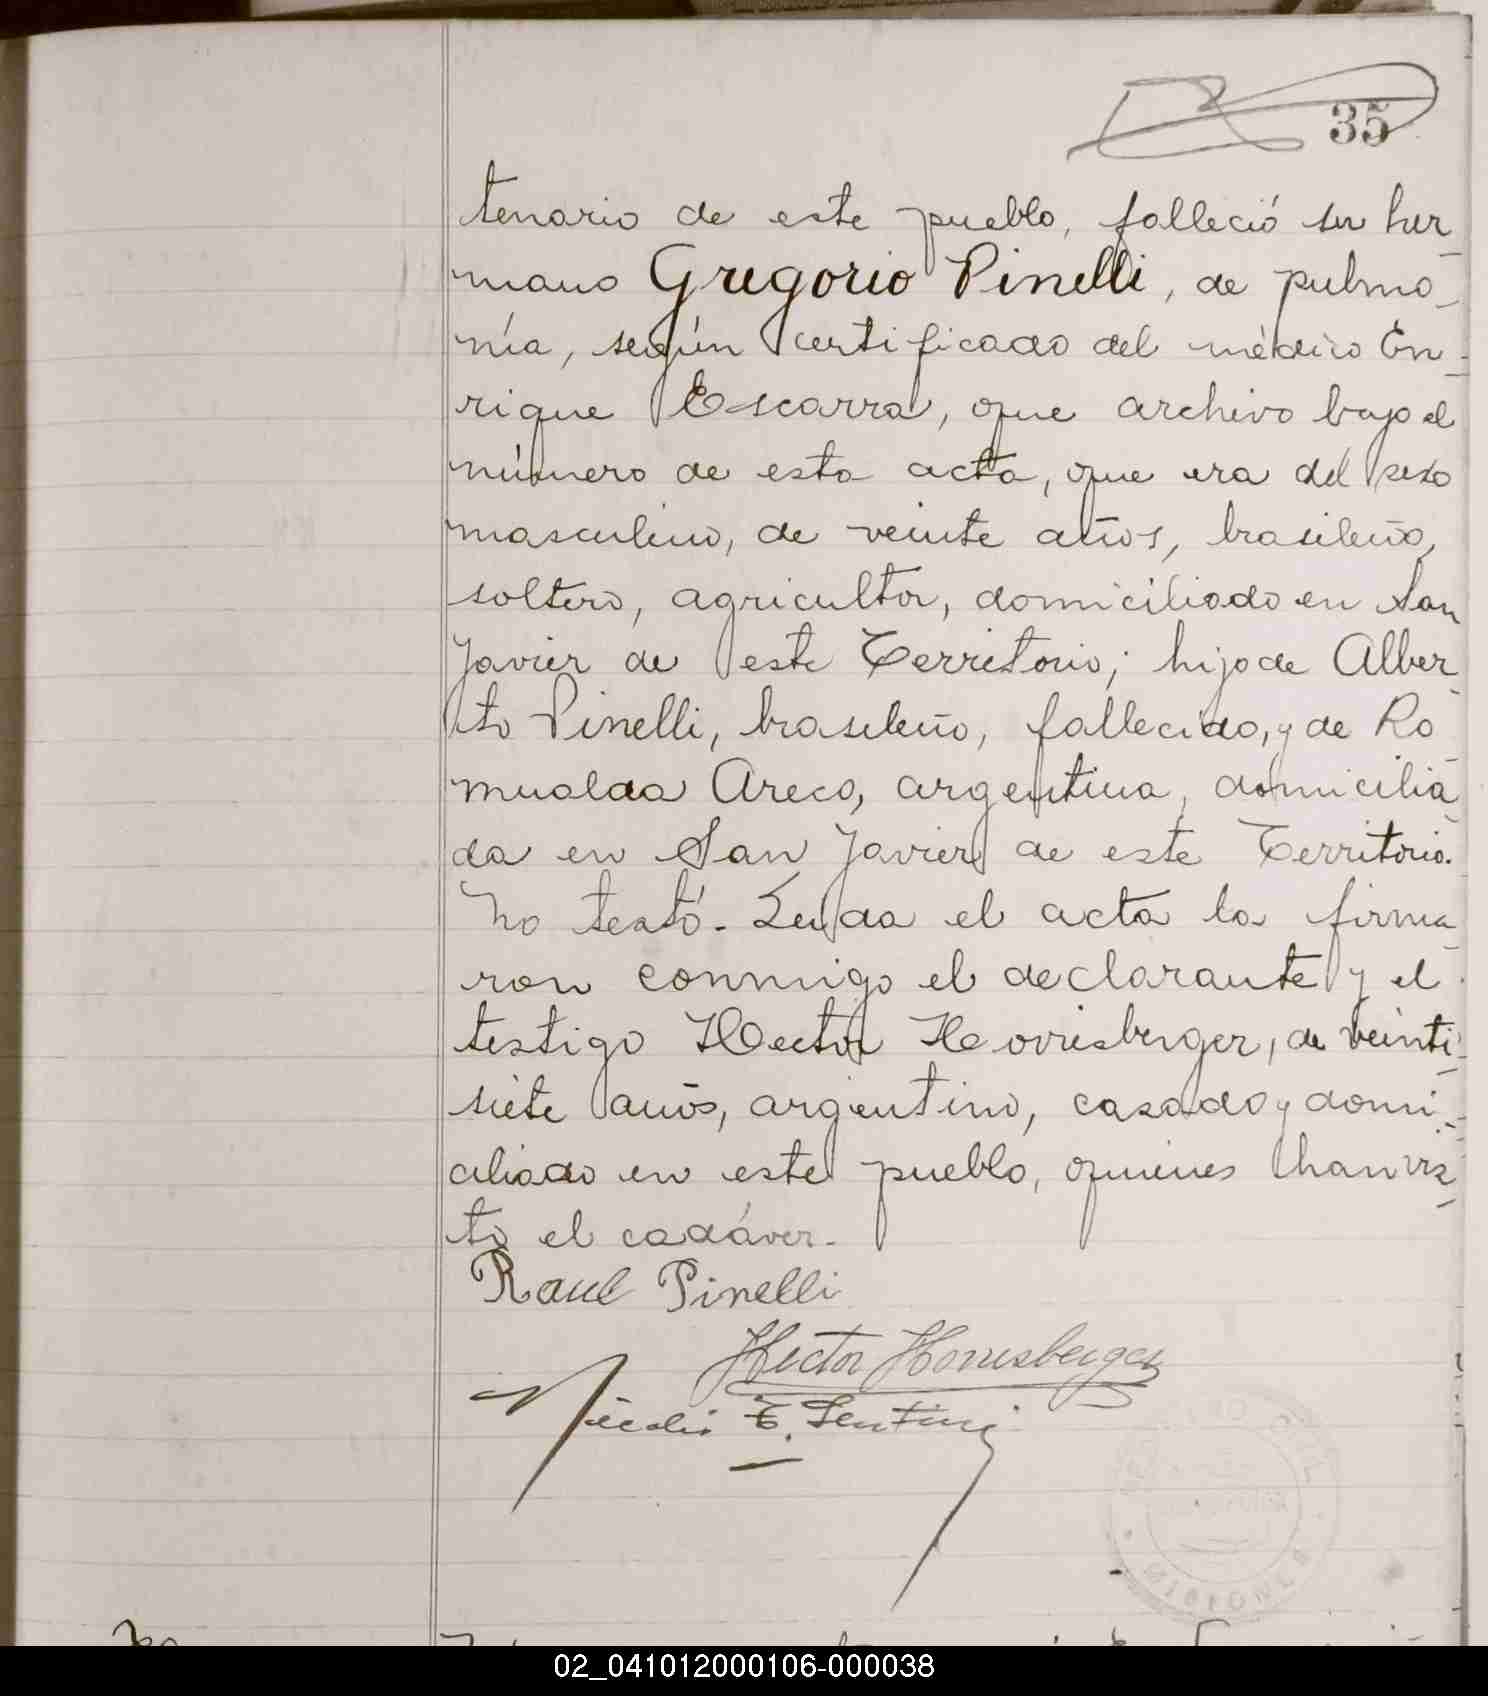 35
tenario de este pueblo, falleció su her-
mano Gregorio Pinelli, de pulmo-
nía, según certificado del médico En-
rique Escarra, que archivo bajo el
número de esta acta, que era del sexo
masculino, de veinte años, brasileño,
soltero, agricultor, domiciliado en San
Javier de este Territorio; hijo de Alber-
to Pinelli, brasileño, fallecido, y de Ro-
mualda Areco, argentina, domicilia-
da en San Javier de este Territorio.
No testó. Leída el acta la firma-
ron conmigo el declarante y el
testigo Hector Horrisberger, de veinti-
siete años, argentino, casado y domi-
ciliado en este pueblo, quienes han vis-
to el cadáver.
Raul Pinelli
Hector Horrisberger
02_041012000106-000038